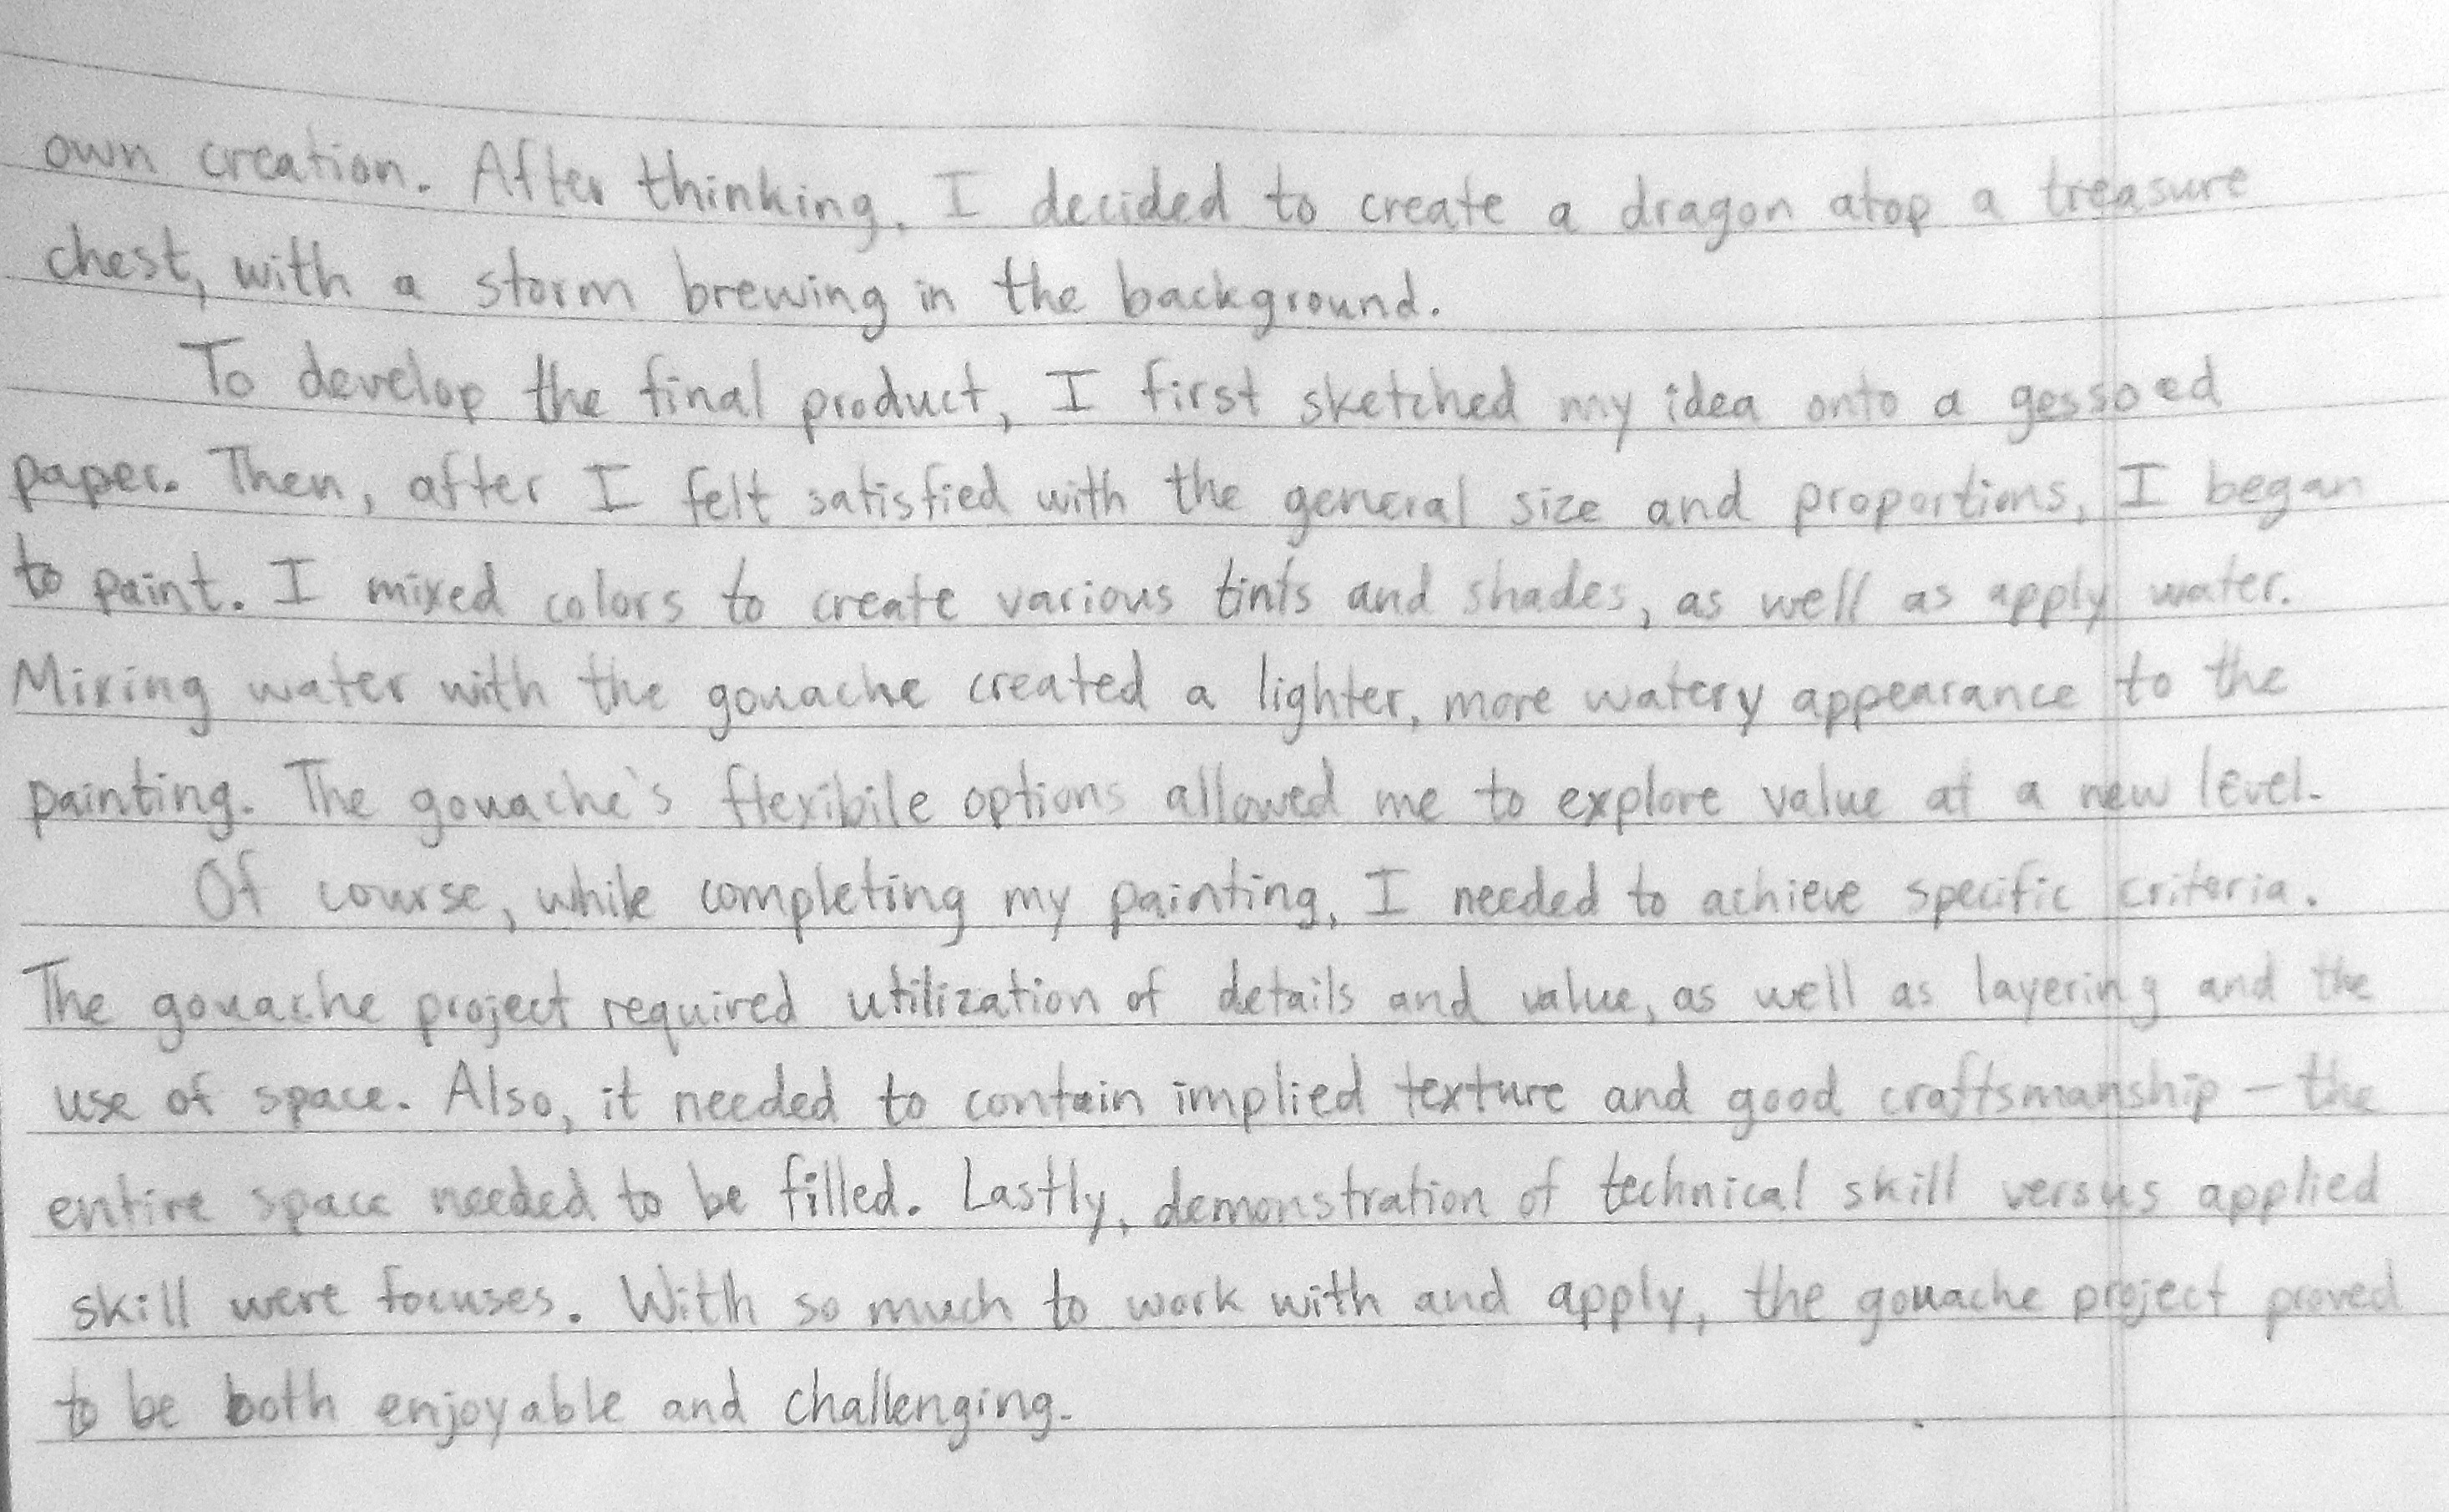 own creation. After thinking, I decided to create a dragon atop a treasure
chest, with a storm brewing in the background.
To develop the final product, I first sketched my idea onto a gessoed
paper. Then, after I felt satisfied with the general size and proportions, I began
to paint. I mixed colors to create various tints and shades, as well as apply water.
Mixing water with the gouache created a lighter, more watery appearance to the
painting. The gouache's flexibile options allowed me to explore value at a new level.
Of course, while completing my painting, I needed to achieve specific criteria.
The gouache project required utilization of details and value, as well as layering and the
use of space. Also, it needed to contain implied texture and good craftsmanship - the
entire space needed to be filled. Lastly, demonstration of technical skill versus applied
skill were focuses. With so much to work with and apply, the gouache project proved
to be both enjoyable and challenging.